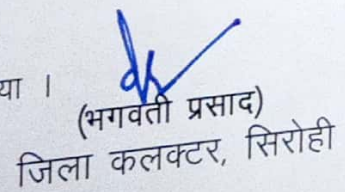 या ।
(भगवती प्रसाद)
जिला कलक्टर, सिरोही